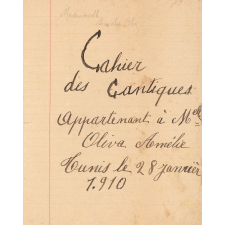 Cahier
des Cantiques
Appartenant à Melle
Oliva Amélie
Tunis le 28 janvier
1.910